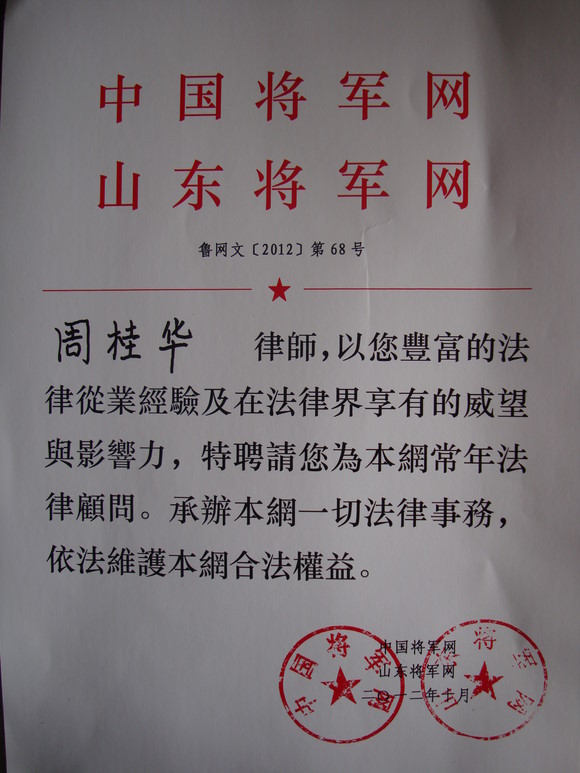 中国将军网
山东将军网
鲁网文〔2012〕第68号
周桂华 律師，以您豐富的法
律從業經驗及在法律界享有的威望
與影響力，特聘請您為本網常年法
律顧問。承辦本網一切法律事務，
依法維護本網合法權益。
中国将军网
山东将军网
二〇一二年十月
中国将军网
山东将军网